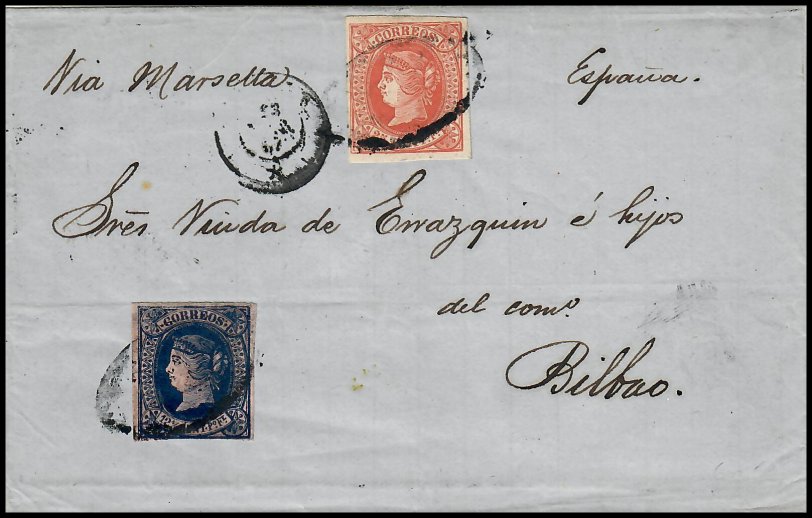 CORREOS
Via Marsella.
España.
Sres Viuda de Errazquin é hijos
del como.
CORREOS
Bilbao.